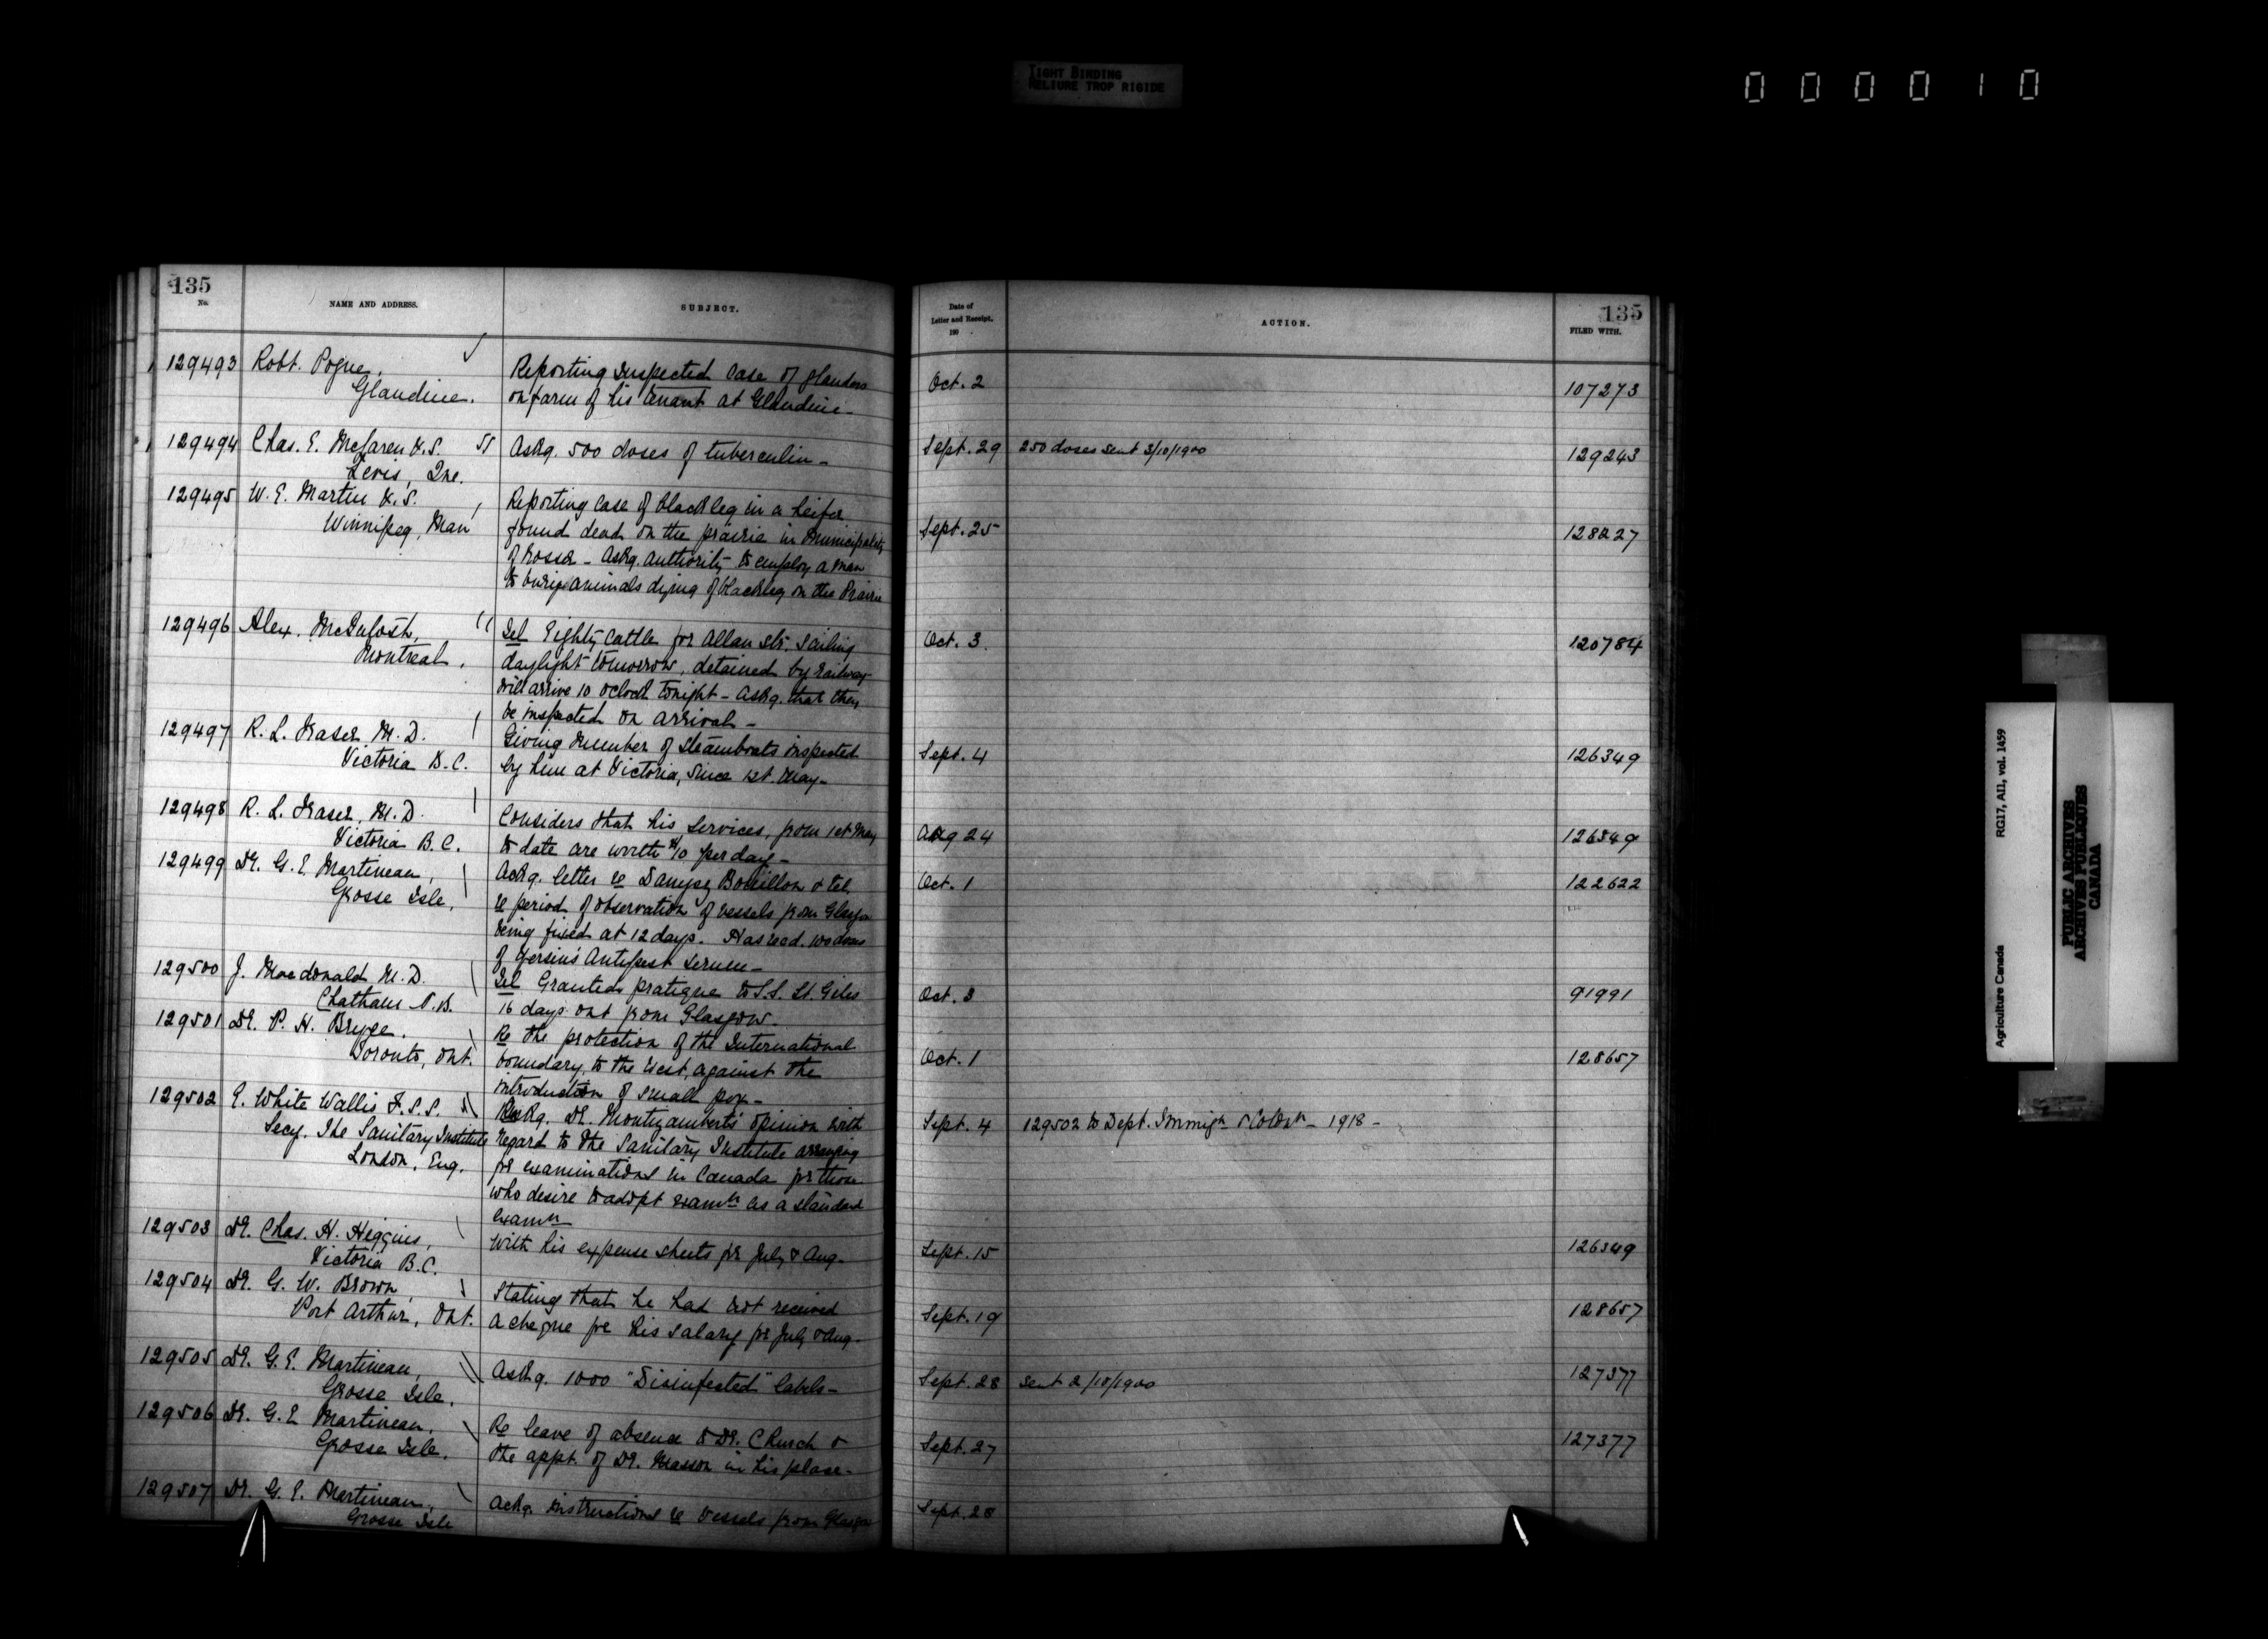 TIGHT BINDING
RELIURE TROP RIGIDE
000010
135
No.
NAME AND ADDRESS.
SUBJECT.
129493 Robt. Pogue,
Glandine.
Reporting suspected case of glanders
on farm of his tenant at Glandine -
129494 Chas. E. McLaren V.S.
Levis, Que.
Askg. 500 doses of tuberculin -
129495 W. E. Martin V.S.
Winnipeg, Man
Reporting case of blackleg in a heifer
found dead on the prairie in Municipality
of Rosser - Askg. authority to employ a man
to bury animals dying of blackleg on the Prairie
129496 Alex. McIntosh,
Montreal.
Tel Eighty cattle for Allan str. sailing
daylight tomorrow, detained by railway
will arrive 10 oclock tonight - Askg. that they
be inspected on arrival -
129497 R. L. Fraser M.D.
Victoria B.C.
Giving number of steamboats inspected
by him at Victoria, since 1st. May -
129498 R. L. Fraser, M.D.
Victoria B.C.
Considers that his services, from 1st May
to date are worth $10 per day -
129499 Dr. G. E. Martineau,
Grosse Isle,
Ackg. letter re Danysz Bouillon & tel.
re period of observation of vessels from Glasgow
being fixed at 12 days. Has recd. 100 doses
of Yersins Antipest serum -
129500 J. Macdonald M.D.
Chatham N.B.
Tel Granted pratique to S.S. St. Giles
16 days out from Glasgow.
129501 Dr. P. H. Bryce.
Toronto, Ont.
Re the protection of the International
boundary, to the West, against the
introduction of small pox -
129502 E. White Wallis F.S.S.
Secy. The Sanitary Institute
London, Eng.
Dr. Montizambert's opinion with
regard to the Sanitary Institute arranging
for examinations in Canada for those
who desire to adopt examn as a standard
examn
129503 Dr. Chas. H. Higgins,
Victoria B.C.
With his expense sheets for July & Aug -
129504 Dr. G. W. Brown,
Port Arthur, Ont.
Stating that he had not received
a cheque for his salary for July & Aug -
129505 Dr. G. E. Martineau,
Grosse Isle.
Askg. 1000 "Disinfected" labels -
129506 Dr. G. E. Martineau.
Grosse Isle.
Re leave of absence to Dr. Church &
the appt. of Dr. Masson in his place -
129507 Dr. G. E. Martineau,
Grosse Isle
Ackg. instructions re vessels from Glasgow
135
Date of
Letter and Receipt.
190
ACTION.
FILED WITH.
Oct. 2 107273
Sept. 29 250 doses sent 3/10/1900 129243
Sept. 25 128227
Oct. 3. 120784
Sept. 4 126349
Aug 24 126349
Oct. 1 122622
Oct. 3 91991
Oct. 1 128657
Sept. 4 129502 to Dept. Immign & Colozn - 1918 -
Sept. 15 126349
Sept. 19 128657
Sept. 28 sent 2/10/1900 127377
Sept. 27 127377
Sept. 28
Agriculture Canada RG17, AII, vol. 1459
PUBLIC ARCHIVES
ARCHIVES PUBLIQUES
CANADA